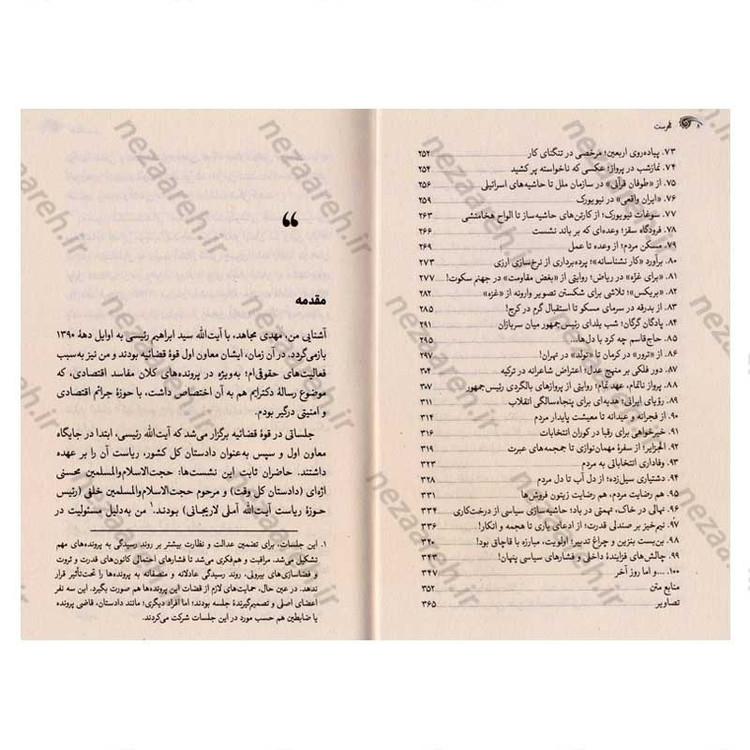 ۸ فهرست
۷۳. پیاده‌روی اربعین؛ مرخصی در تنگنای کار ۲۵۲
۷۴. نمازشب در پرواز؛ عکسی که ناخواسته پر کشید ۲۵۴
۷۵. از «طوفان قرآنی» در سازمان ملل تا حاشیه‌های اسرائیلی ۲۵۶
۷۶. «ایران واقعی» در نیویورک ۲۵۹
۷۷. سوغات نیویورک؛ از کارتن‌های حاشیه‌ساز تا الواح هخامنشی ۲۶۳
۷۸. فرودگاه سقز؛ وعده‌ای که بر باند نشست ۲۶۶
۷۹. مسکن مردم؛ از وعده تا عمل ۲۶۹
۸۰. برآورد «کار نشناسانه»؛ پرده‌برداری از نرخ‌سازی ارزی ۲۷۳
۸۱. «برای غزه» در ریاض؛ روایتی از «بغض مقاومت» در جهنم سکوت! ۲۷۷
۸۲. «بریکس»؛ تلاشی برای شکستن تصویر وارونه از «غزه» ۲۸۲
۸۳. از بدرقه در سرمای مسکو تا استقبال گرم در کرج! ۲۸۵
۸۴. پادگان گرگان؛ شب یلدای رئیس‌جمهور میان سربازان ۲۹۱
۸۵. حاج‌قاسم چه کرد با دل‌ها. ۲۹۵
۸۶. از «ترور» در کرمان تا «تولد» در تهران! ۲۹۷
۸۷. دور فلکی بر منهج عدل؛ اعتراض شاعرانه در ترکیه ۳۰۴
۸۸. پرواز ناتمام، عهد تمام؛ روایتی از پروازهای بالگردی رئیس‌جمهور ۳۰۷
۸۹. رؤیای ایرانی؛ هدیه‌ای برای پنجاه‌سالگی انقلاب ۳۱۱
۹۰. از فجرانه و عیدانه تا معیشت پایدار مردم ۳۱۴
۹۱. خیرخواهی برای رقبا در کوران انتخابات ۳۱۶
۹۲. الجزایر؛ از سفرهٔ مهمان‌نوازی تا جمجمه‌های عبرت ۳۱۹
۹۳. وفاداری انتخاباتی به مردم ۳۲۳
۹۴. دشتیاری سیل‌زده؛ از دل آب تا دل مردم ۳۲۸
۹۵. هم رضایت مردم، هم رضایت زیتون فروش‌ها ۳۳۱
۹۶. نهالی در خاک، تهمتی در باد؛ حاشیه‌سازی سیاسی از درخت‌کاری ۳۳۴
۹۷. نیم‌خیز بر صندلی قدرت؛ از ادعای یاری تا هجمه و انکار! ۳۳۶
۹۸. بن‌بست بنزین و چراغ تدبیر؛ اولویت، مبارزه با قاچاق بود! ۳۴۰
۹۹. چالش‌های فزایندهٔ داخلی و فشارهای سیاسی پنهان! ۳۴۳
۱۰۰. ...و اما روز آخر ۳۴۷
منابع متن ۳۵۲
تصاویر ۳۶۵
مقدمه
آشنایی من، مهدی مجاهد، با آیت‌الله سید ابراهیم رئیسی به اوایل دههٔ ۱۳۹۰
بازمی‌گردد. در آن زمان، ایشان معاون اول قوهٔ قضائیه بودند و من نیز به‌سبب
فعالیت‌های حقوقی‌ام؛ به‌ویژه در پرونده‌های کلان مفاسد اقتصادی، که
موضوع رسالهٔ دکترایم هم به آن اختصاص داشت، با حوزهٔ جرائم اقتصادی
و امنیتی درگیر بودم.
جلساتی در قوهٔ قضائیه برگزار می‌شد که آیت‌الله رئیسی، ابتدا در جایگاه
معاون اول و سپس به‌عنوان دادستان کل کشور، ریاست آن را بر عهده
داشتند. حاضران ثابت این نشست‌ها: حجت‌الاسلام‌والمسلمین محسنی
اژه‌ای (دادستان کل وقت) و مرحوم حجت‌الاسلام‌والمسلمین خلفی (رئیس
حوزهٔ ریاست آیت‌الله آملی لاریجانی) بودند.۱ من به‌دلیل مسئولیت در
۱. این جلسات، برای تضمین عدالت و نظارت بیشتر بر روند رسیدگی به پرونده‌های مهم
تشکیل می‌شد. مراقبت و هم‌فکری می‌شد تا فشارهای احتمالی کانون‌های قدرت و ثروت
و فضاسازی‌های بیرونی، روند رسیدگی عادلانه و منصفانه به پرونده‌ها را تحت‌تأثیر قرار
ندهد. در عین حال، حمایت‌های لازم از قضات این پرونده‌ها هم صورت بگیرد. این سه نفر
اعضای اصلی و تصمیم‌گیرندهٔ جلسه بودند؛ اما افراد دیگری؛ مانند دادستان، قاضی پرونده
یا ضابطین هم حسب مورد در این جلسات شرکت می‌کردند.
nezaareh.ir